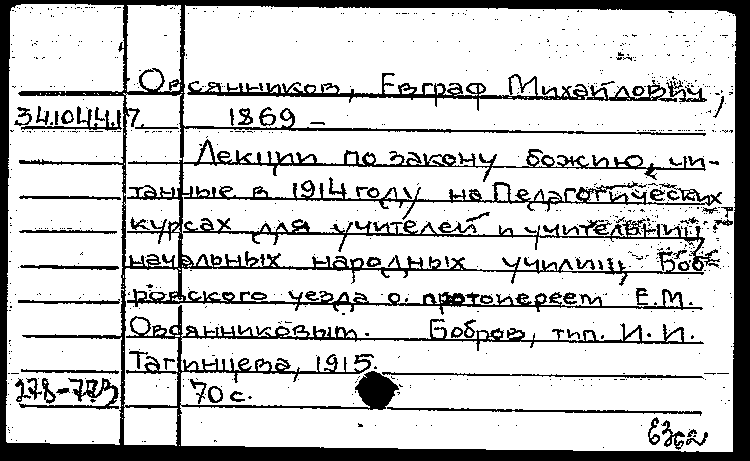 Овсянников, Евграф Михайлович,
34.10.44.17. 1869 –
Лекции по закону божию, чи-
танные в 1914 году на Педагогических
курсах для учителей и учительниц
начальных народных училищ Боб
ровского уезда о. протоиереем Е.М.
Овсянниковым. Бобров, тип. И. И.
Тагинцева, 1915.
70 с.